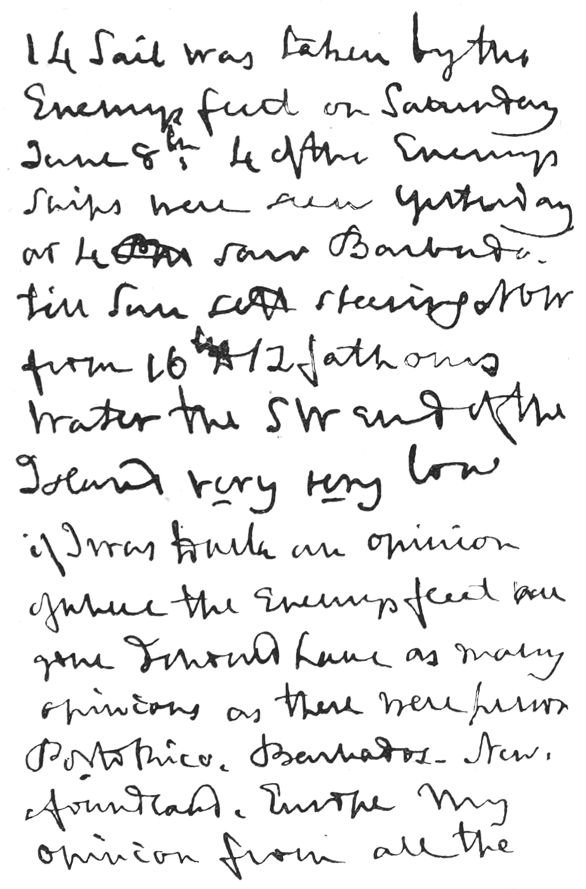 14 Sail was taken by the
Enemys fleet on Saturday
June 8th; 4 of the Enemys
Ships were seen yesterday
at 4 saw Barbuda.
till Sun sett steering NW
from 16 to 12 fathoms
Water the SW end of the
Island very very low
if I was to take an opinion
of where the Enemys fleet are
gone I should have as many
opinions as there were persons
Porto Rico. Barbados. New-
foundland. Europe My
opinion from all the